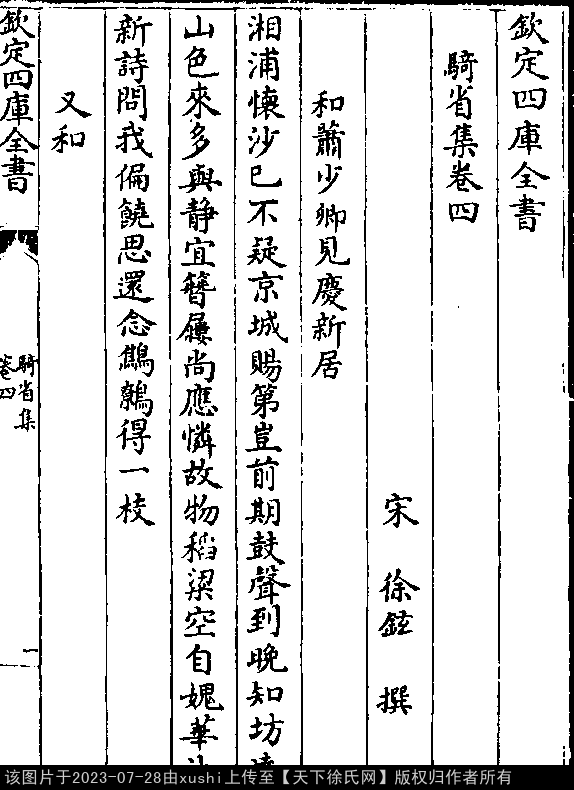 欽定四庫全書
騎省集卷四
宋 徐鉉 撰
和蕭少卿見慶新居
湘浦懷沙已不疑京城賜第豈前期鼓聲到晚知坊
山色來多與静宜簪屨尚應憐故物稻粱空自媿華
新詩問我偏饒思還念鷦鷯得一枝
又和
欽定四庫全書
騎省集
卷四
一
该图片于2023-07-28由xushi上传至【天下徐氏网】版权归作者所有